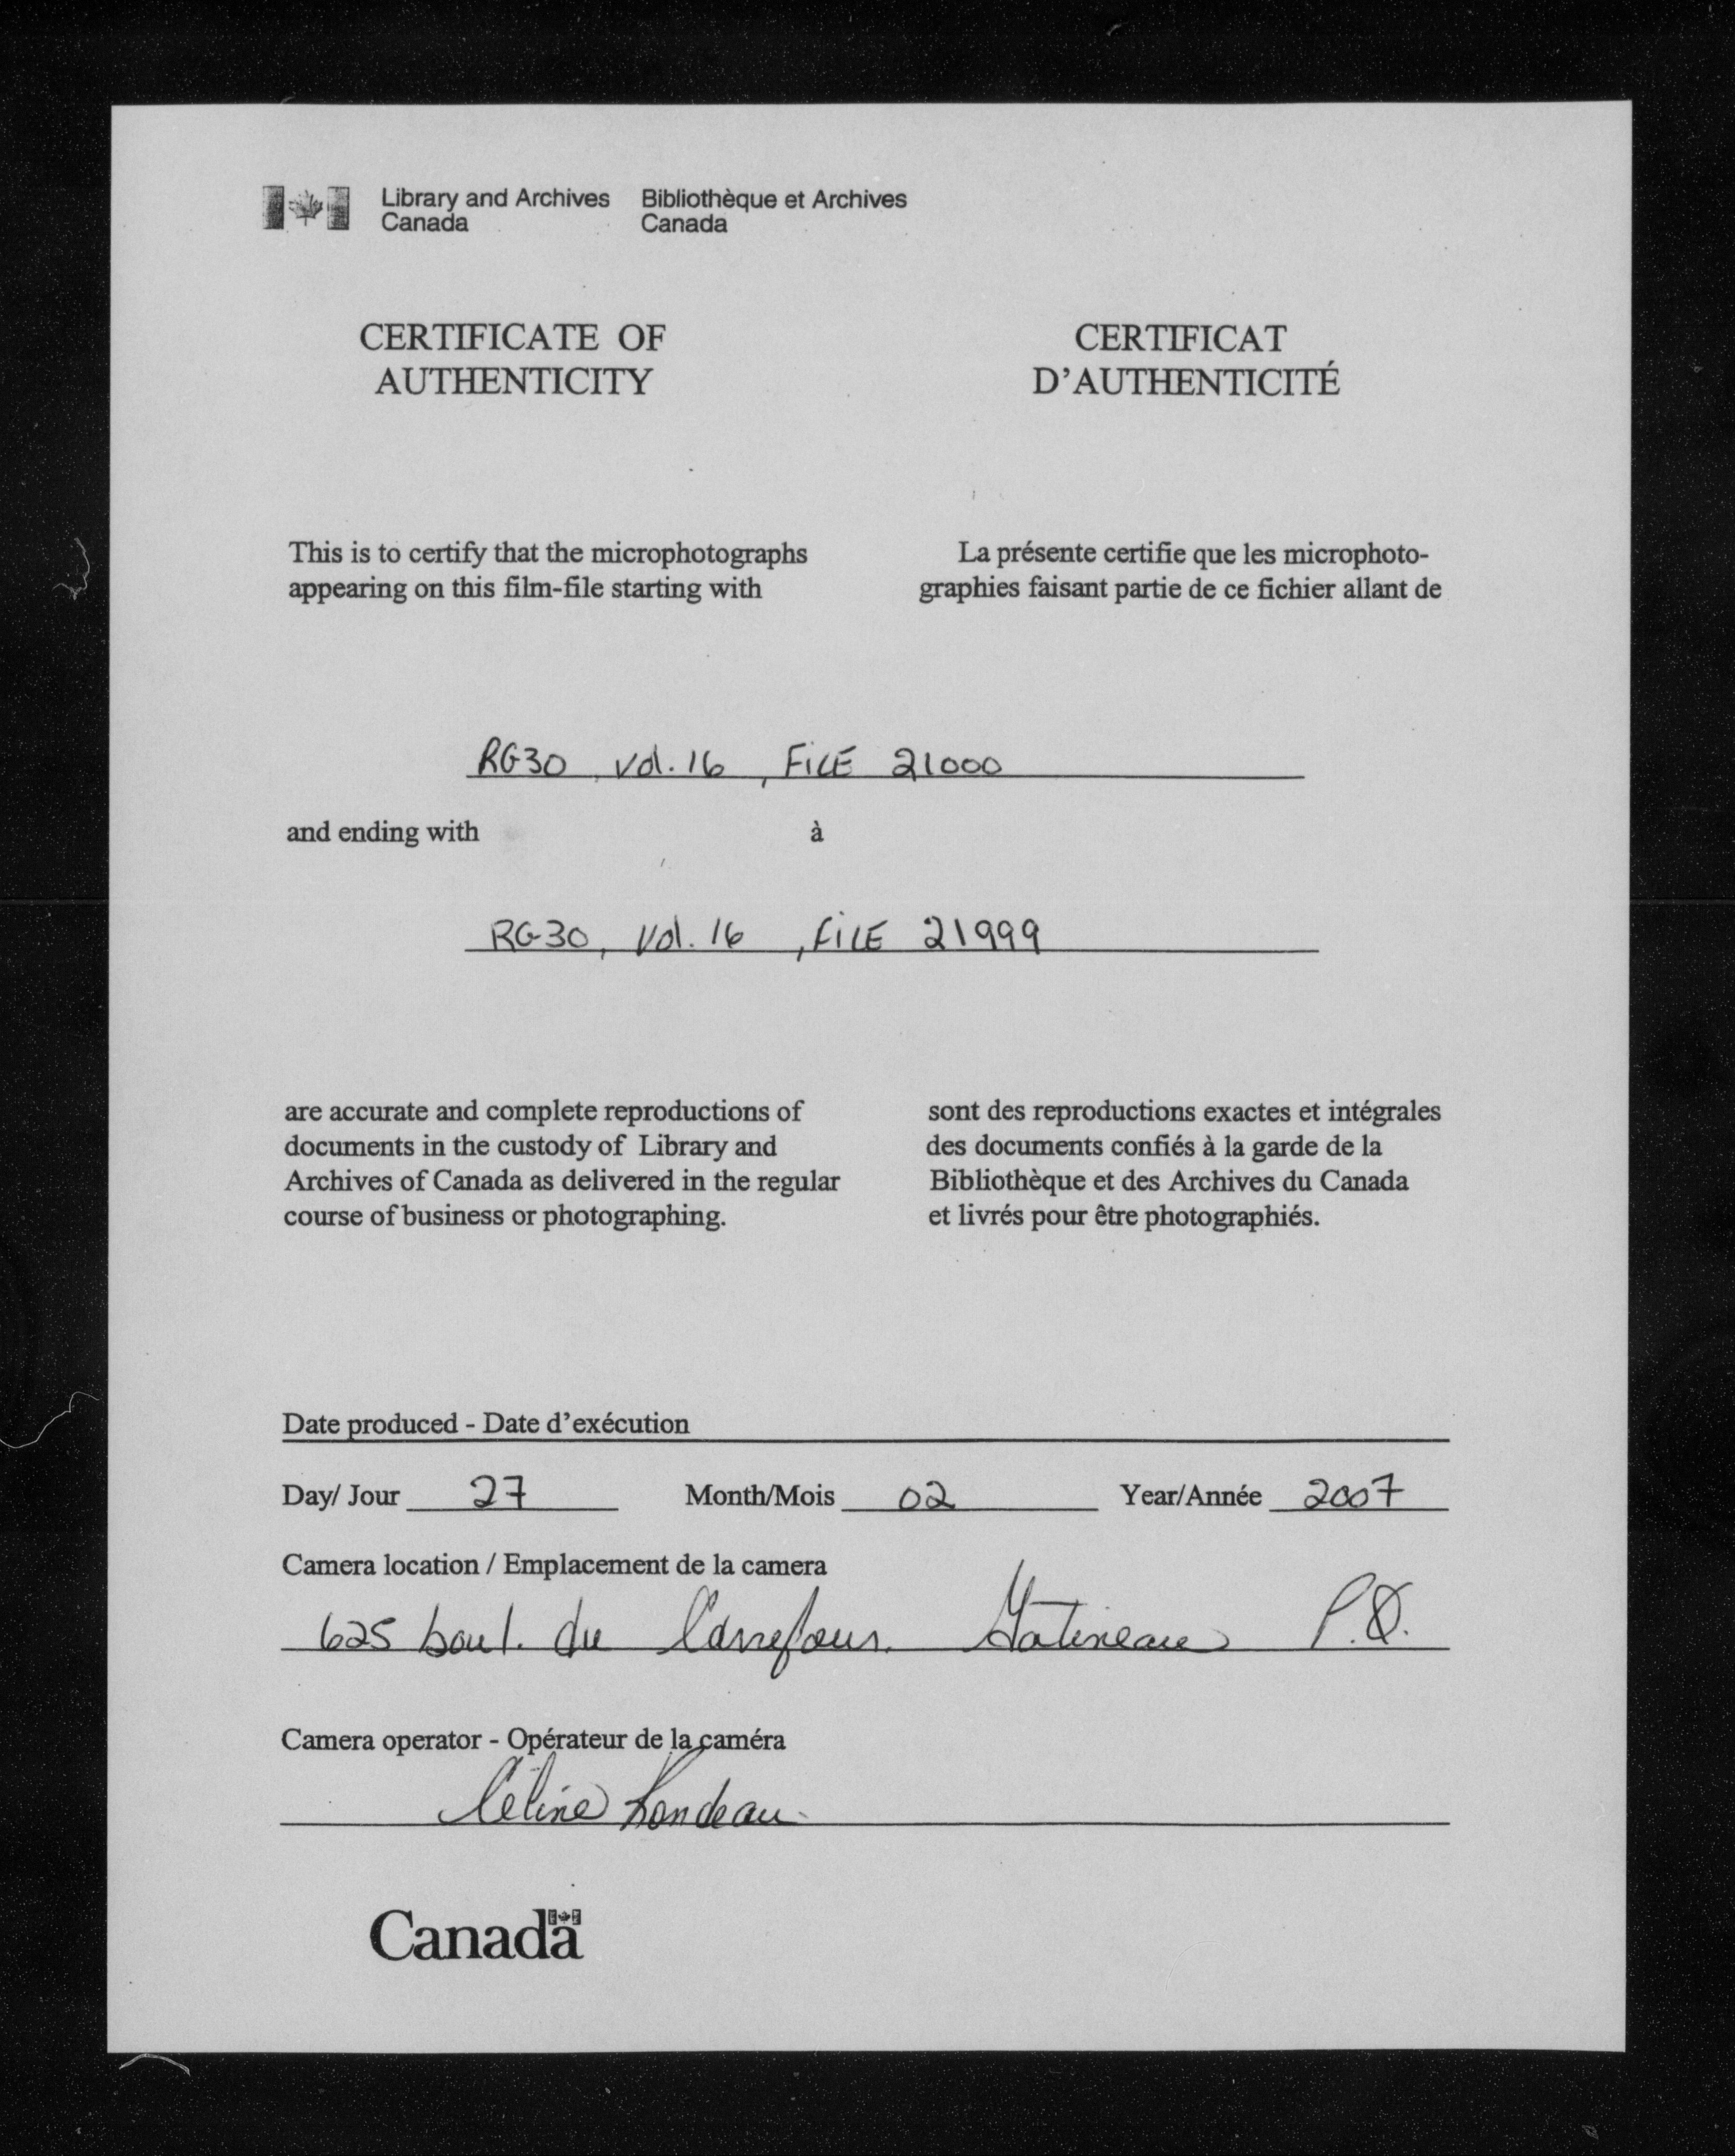 Library and Archives Canada
Bibliothèque et Archives Canada
CERTIFICATE OF
AUTHENTICITY
CERTIFICAT
D'AUTHENTICITÉ
This is to certify that the microphotographs
appearing on this film-file starting with
La présente certifie que les microphoto-
graphies faisant partie de ce fichier allant de
RG30, Vol. 16, FILE 21000
and ending with
à
RG30, Vol. 16, FILE 21999
are accurate and complete reproductions of
documents in the custody of Library and
Archives of Canada as delivered in the regular
course of business or photographing.
sont des reproductions exactes et intégrales
des documents confiés à la garde de la
Bibliothèque et des Archives du Canada
et livrés pour être photographiés.
Date produced - Date d'exécution
Day/ Jour 27 Month/Mois 02 Year/Année 2007
Camera location / Emplacement de la camera
625 boul. du Carrefour. Gatineau P.Q.
Camera operator - Opérateur de la caméra
Céline Rondeau
Canada